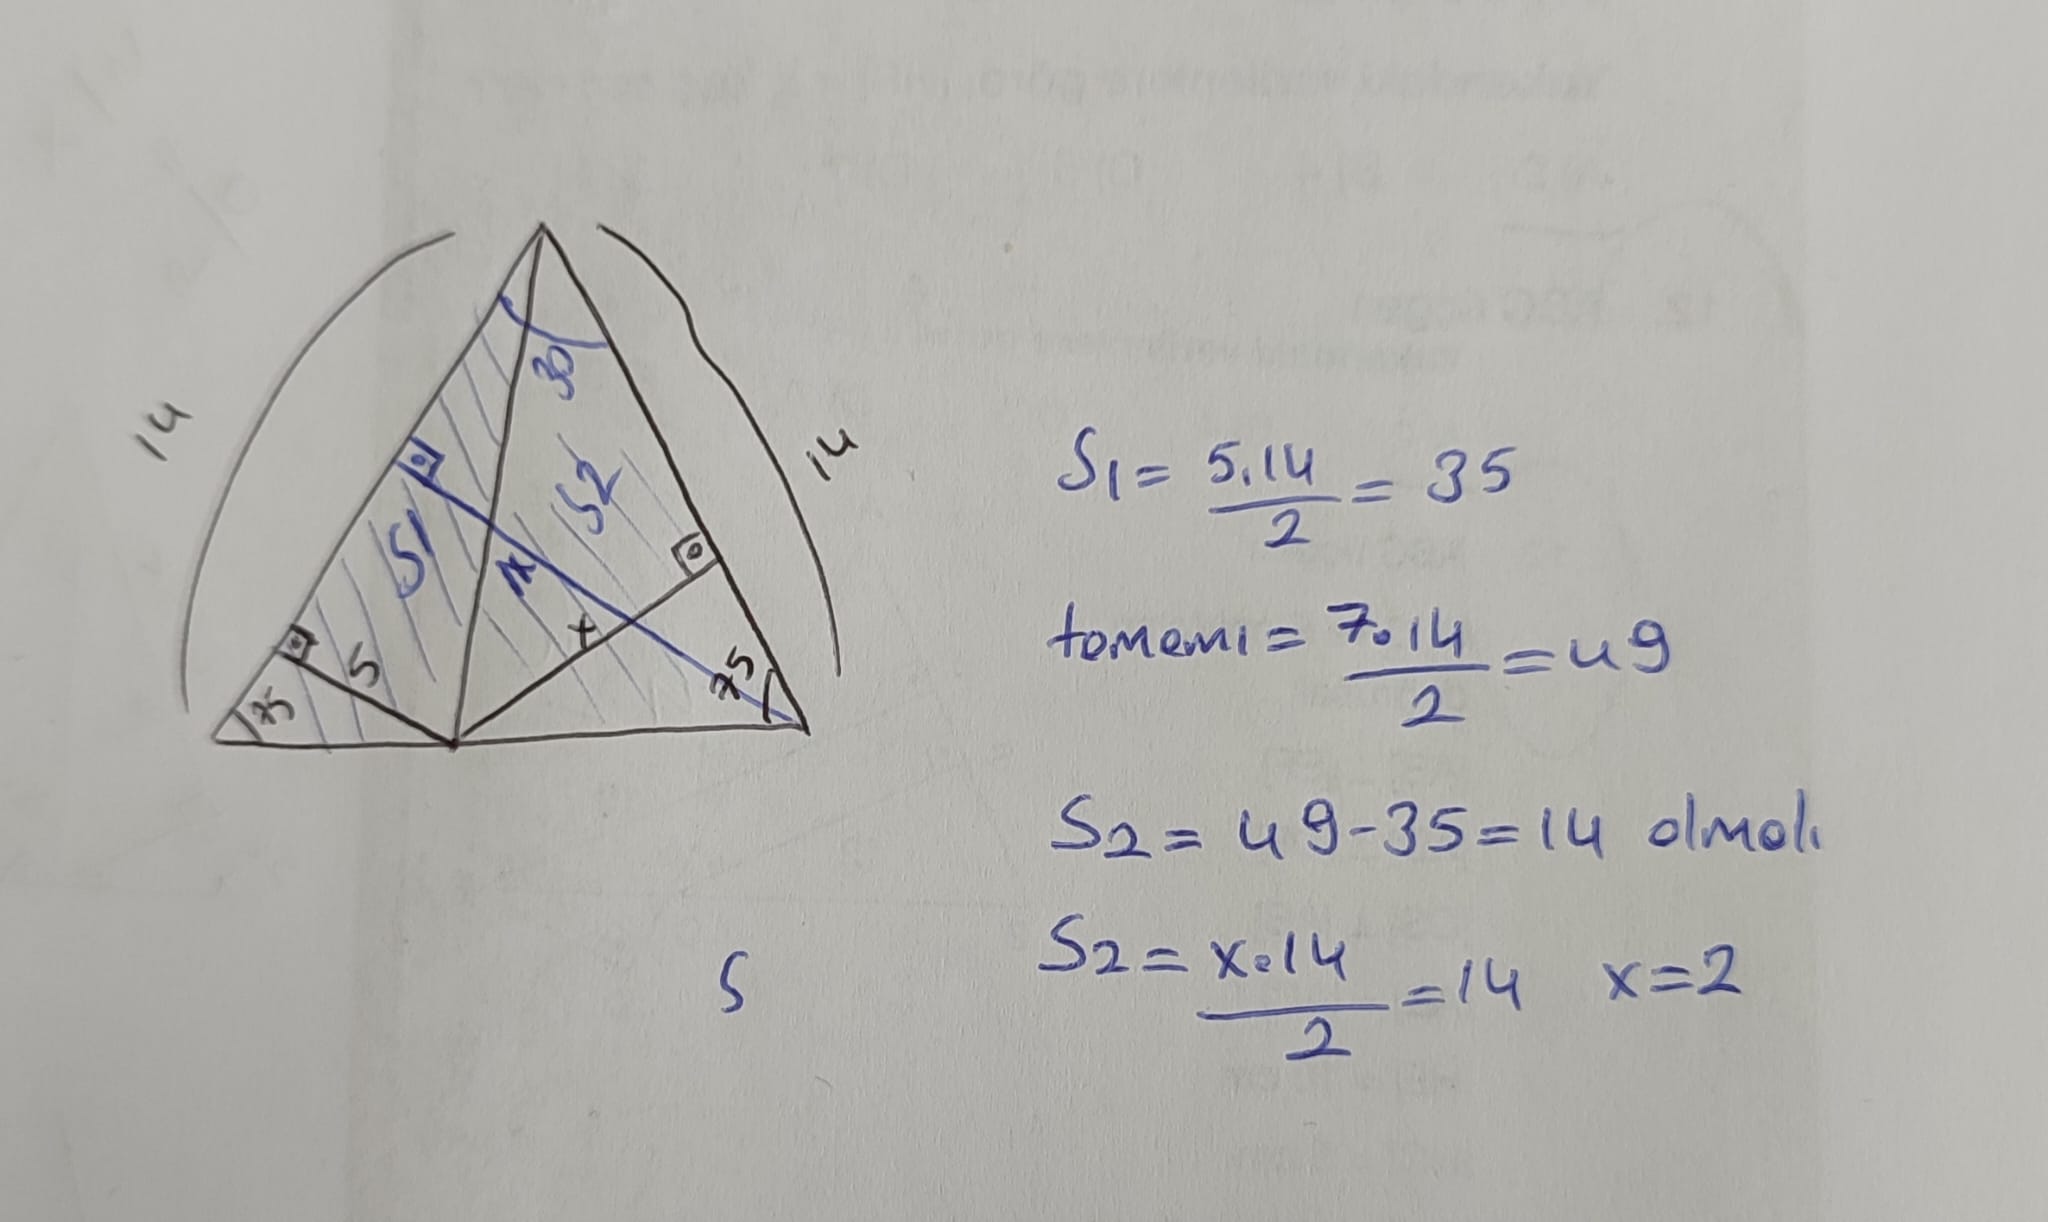 14
30
14
S1
S2
7
x
5
75
75
S1 = 5.14/2 = 35
tamamı = 7.14/2 = 49
S2 = 49-35=14 olmalı
S2 = x.14/2 = 14 x=2
S